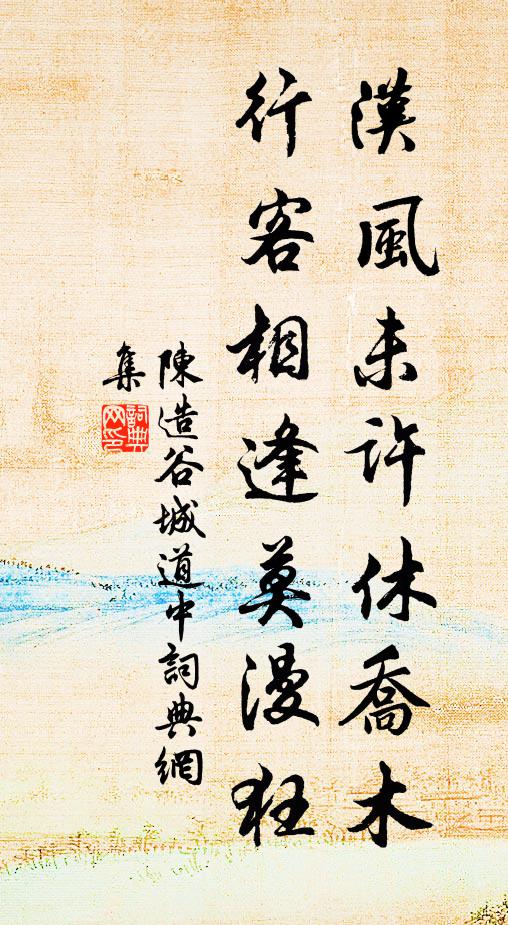 漢風未許休喬木
行客相逢莫漫狂
陳造谷城道中詞典網
集
詞典網印